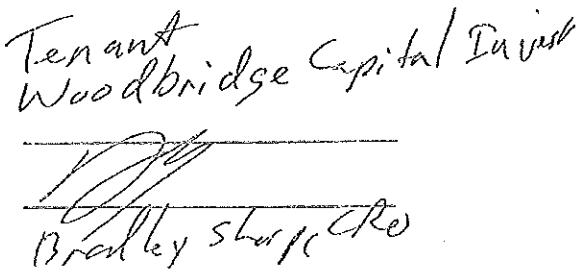 Tenant
Woodbridge Capital Invest
Bradley Sharp, CRO